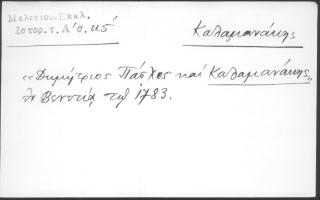 Μελετίου. Εκκλ.
Ιστορ. τ. Α' σ. με'
Καλαμανάκης
«Δημήτριος Πάσχος και Καλαμανάκης»
ἐν Βενετίᾳ τῷ 1783.